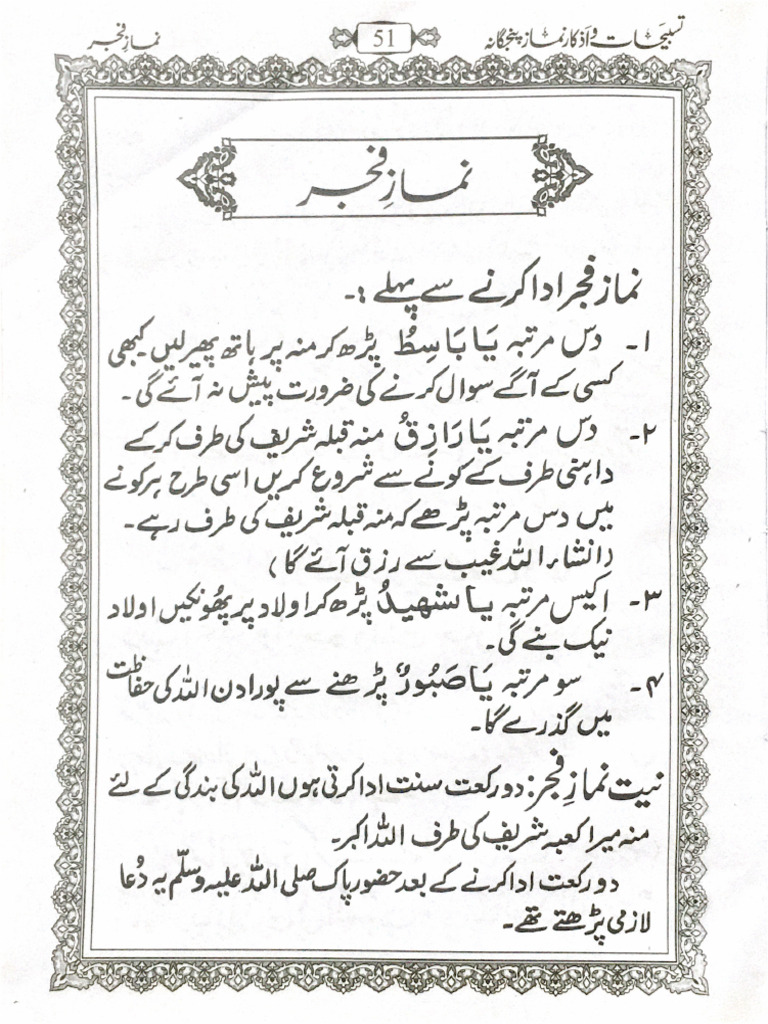 تسبیحات و اذکار نماز پنجگانہ
51
نمازِ فجر
نمازِ فجر
نماز فجر ادا کرنے سے پہلے :۔
۱۔ دس مرتبہ یَا بَاسِطُ پڑھ کر منہ پر ہاتھ پھیر لیں کبھی
کسی کے آگے سوال کرنے کی ضرورت پیش نہ آئے گی۔
۲۔ دس مرتبہ یَا رَازِقُ منہ قبلہ شریف کی طرف کر کے
داہنی طرف کے کونے سے شروع کریں اسی طرح ہر کونے
میں دس مرتبہ پڑھے کہ منہ قبلہ شریف کی طرف رہے۔
(انشاء اللہ غیب سے رزق آئے گا)
۳۔ اکیس مرتبہ یا شھیدُ پڑھ کر اولاد پر پھُونکیں اولاد
نیک بنے گی۔
۴۔ سو مرتبہ یَا صَبُورُ پڑھنے سے پورا دن اللہ کی حفاظت
میں گذرے گا۔
نیت نمازِ فجر: دو رکعت سنت ادا کرتی ہوں اللہ کی بندگی کے لئے
منہ میرا کعبہ شریف کی طرف اللہ اکبر۔
دو رکعت ادا کرنے کے بعد حضور پاک صلی اللہ علیہ وسلّم یہ دُعا
لازمی پڑھتے تھے۔